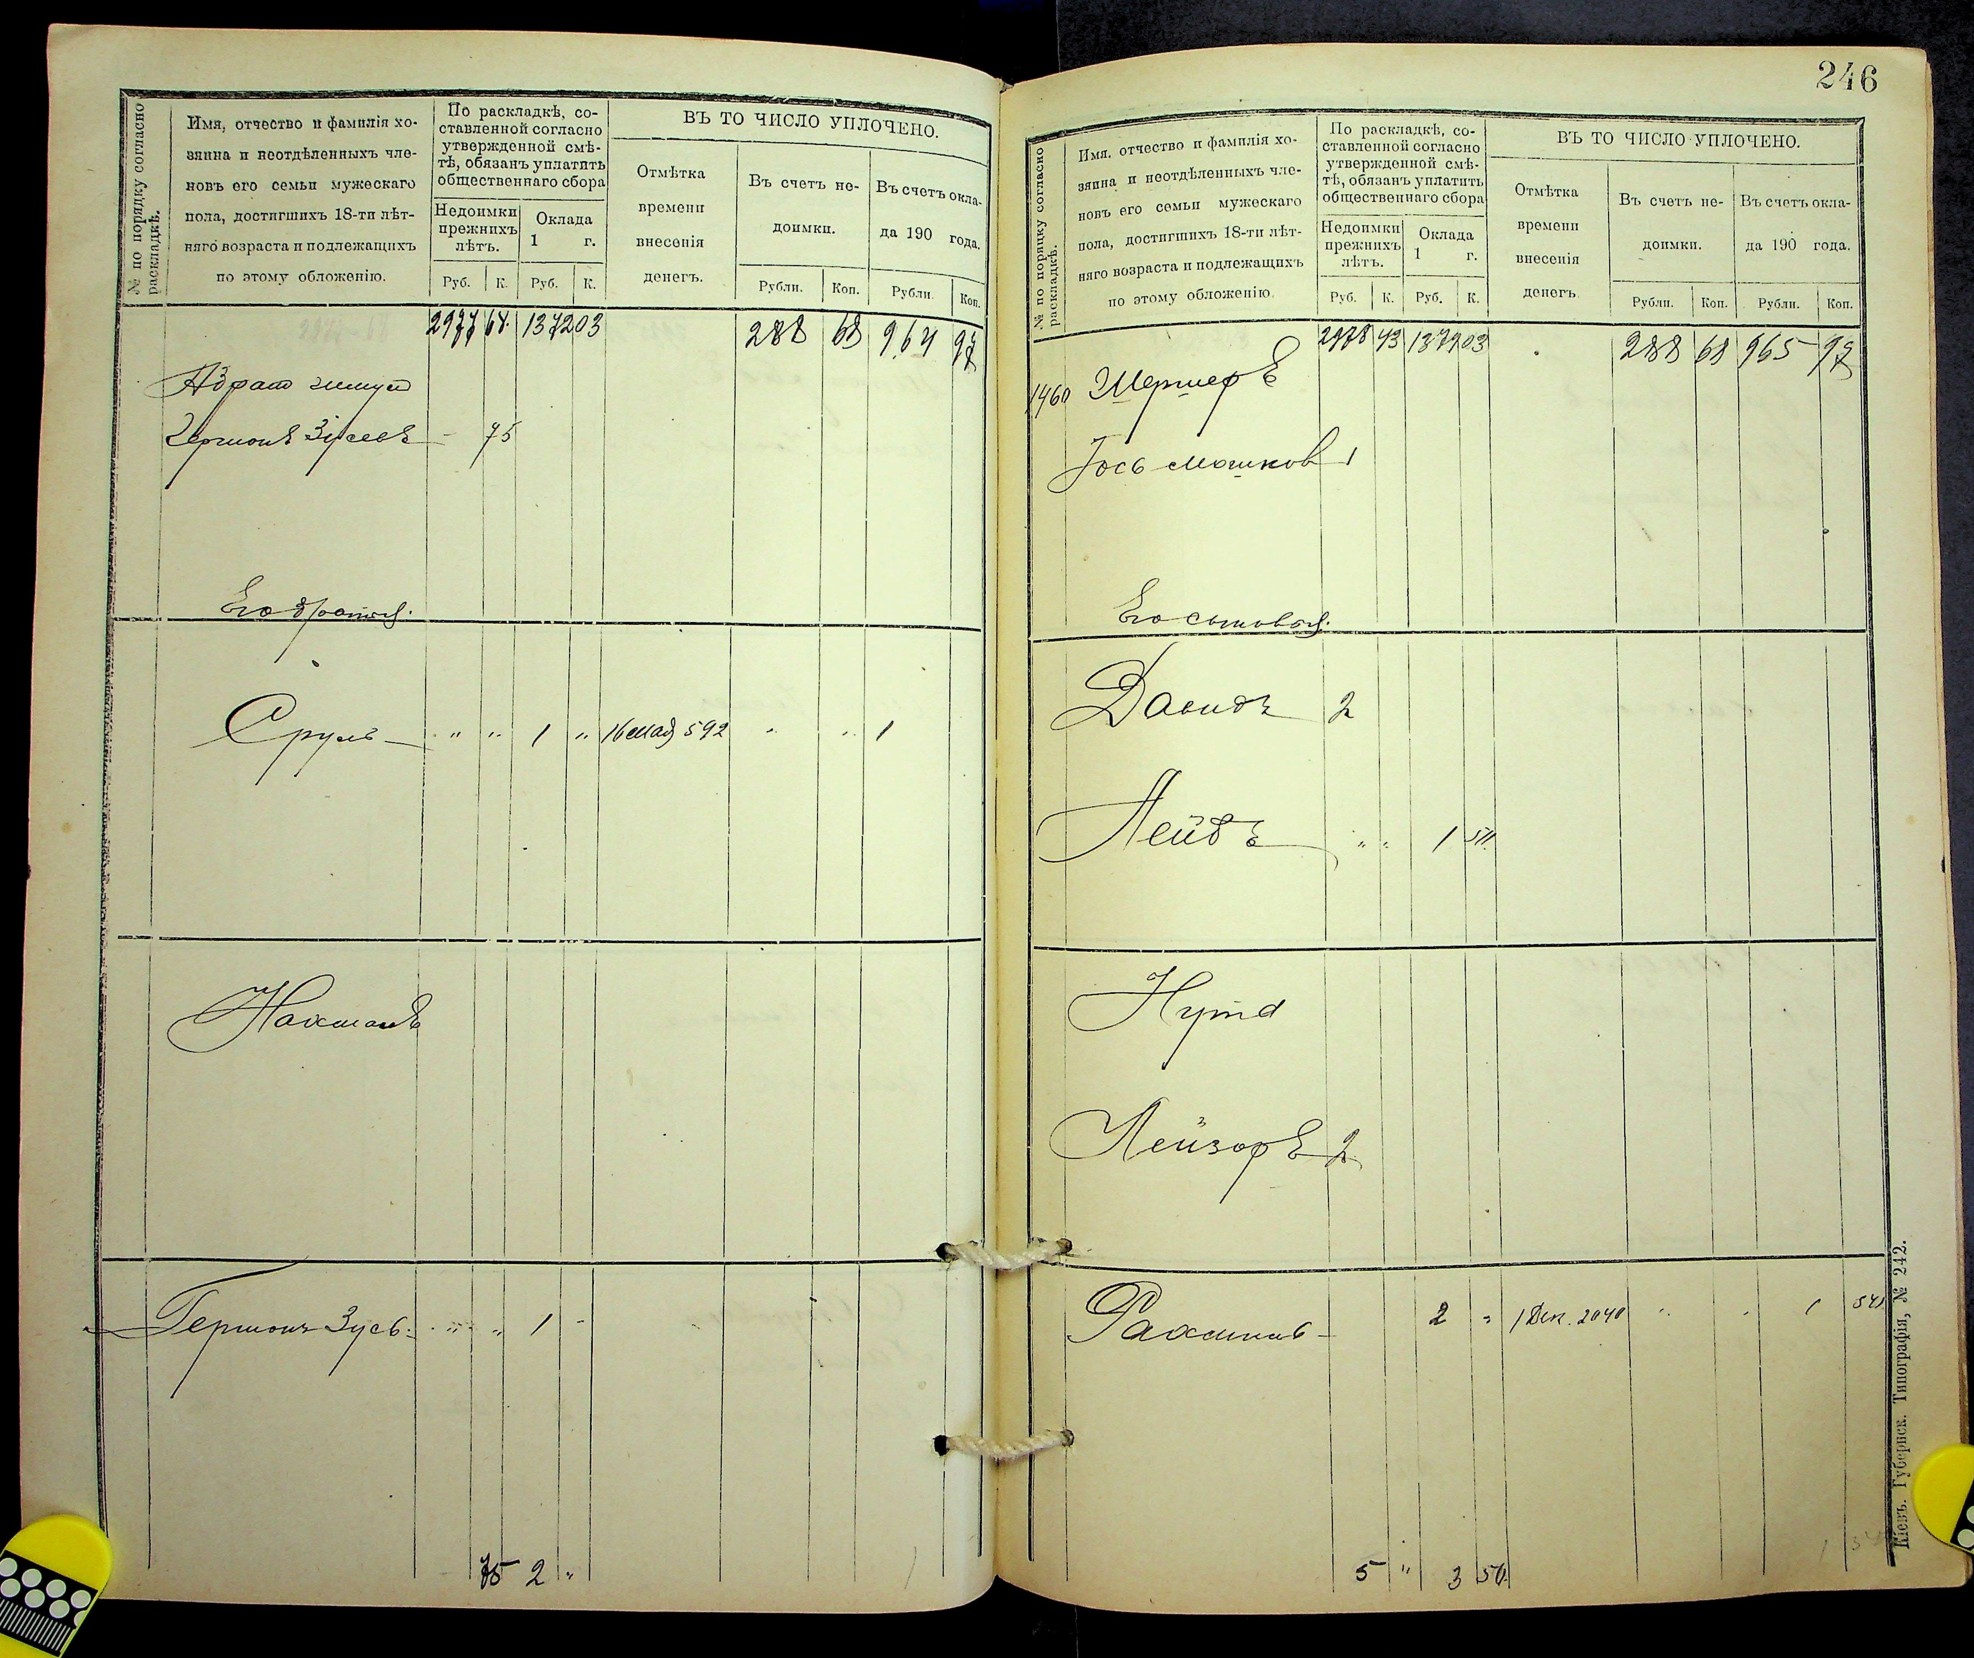 № по порядку согласно
раскладкѣ.
Имя, отчество и фамилія хо-
зяина и неотдѣленныхъ чле-
новъ его семьи мужескаго
пола, достигшихъ 18-ти лѣт-
няго возраста и подлежащихъ
по этому обложенію.
По раскладкѣ, со-
ставленной согласно
утвержденной смѣ-
тѣ, обязанъ уплатить
общественнаго сбора
Недоимки
прежнихъ
лѣтъ.
Оклада
1 г.
Руб. К. Руб. К.
ВЪ ТО ЧИСЛО УПЛОЧЕНО.
Отмѣтка
времени
внесенія
денегъ.
Въ счетъ не-
доимки.
Рубли. Коп.
Въ счетъ окла-
да 190 года.
Рубли. Коп.
2977 68 1372 03 288 68 964 97
Гершонъ Зусевъ - 75
Его братья:
Сруль - " " 1 " 16 мая 592 " " 1
Нахманъ
Гершонъ Зусь - " " 1 -
75 2 "
246
№ по порядку согласно
раскладкѣ.
Имя, отчество и фамилія хо-
зяина и неотдѣленныхъ чле-
новъ его семьи мужескаго
пола, достигшихъ 18-ти лѣт-
няго возраста и подлежащихъ
по этому обложенію.
По раскладкѣ, со-
ставленной согласно
утвержденной смѣ-
тѣ, обязанъ уплатить
общественнаго сбора
Недоимки
прежнихъ
лѣтъ.
Оклада
1 г.
Руб. К. Руб. К.
ВЪ ТО ЧИСЛО УПЛОЧЕНО.
Отмѣтка
времени
внесенія
денегъ.
Въ счетъ не-
доимки.
Рубли. Коп.
Въ счетъ окла-
да 190 года.
Рубли. Коп.
2978 43 1374 03 288 68 965 97
1460 Шермеръ
Іось Мошков 1
Его сыновья:
Давидъ 2
Лейбъ " " 1 50
Нута
Лейзоръ 2
Рахмиль - 2 " 1 Дек. 2040 " " 1 50
5 " 3 50
Кіевъ. Губернск. Типографія, № 242.